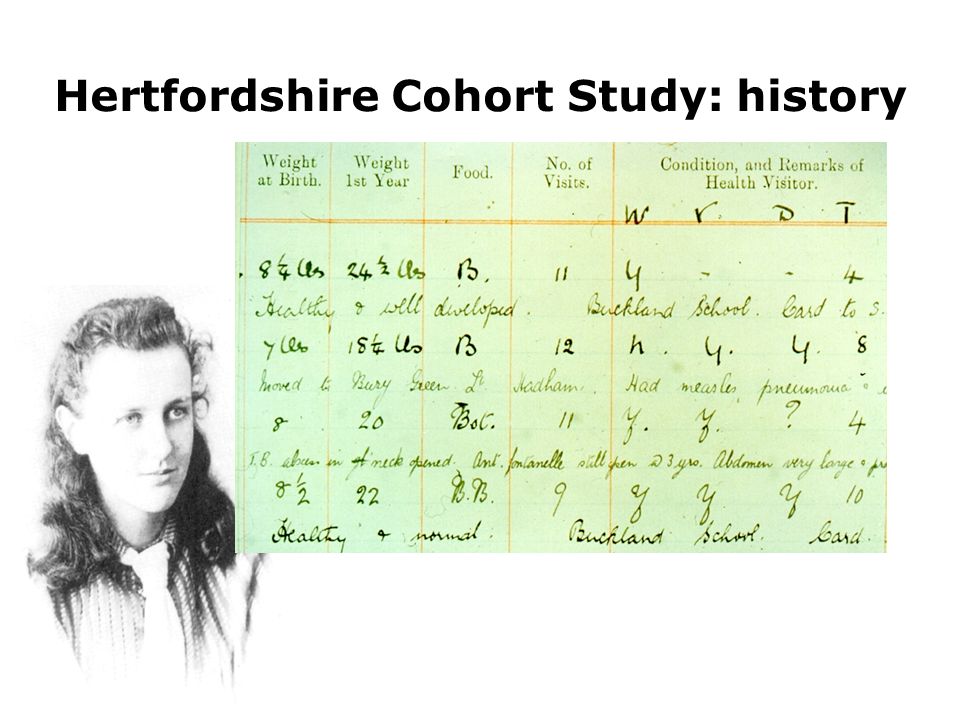 Hertfordshire Cohort Study: history
Weight at Birth. Weight 1st Year Food. No. of Visits. Condition, and Remarks of Health Visitor.
W V. D T
8¼ lbs 24½ lbs B. 11 y - - 4
Healthy & well developed. Buckland School. Card to S.
7 lbs 18¼ lbs B 12 n. y. y. 8
Moved to Bury Green Lt. Hadham. Had measles, pneumonia
8 20 Bot. 11 y. y. ? 4
T.B. absces in neck opened. Ant. fontanelle still open @ 3 yrs. Abdomen very large
8½ 22 B.B. 9 y y y 10
Healthy & normal. Buckland School. Card